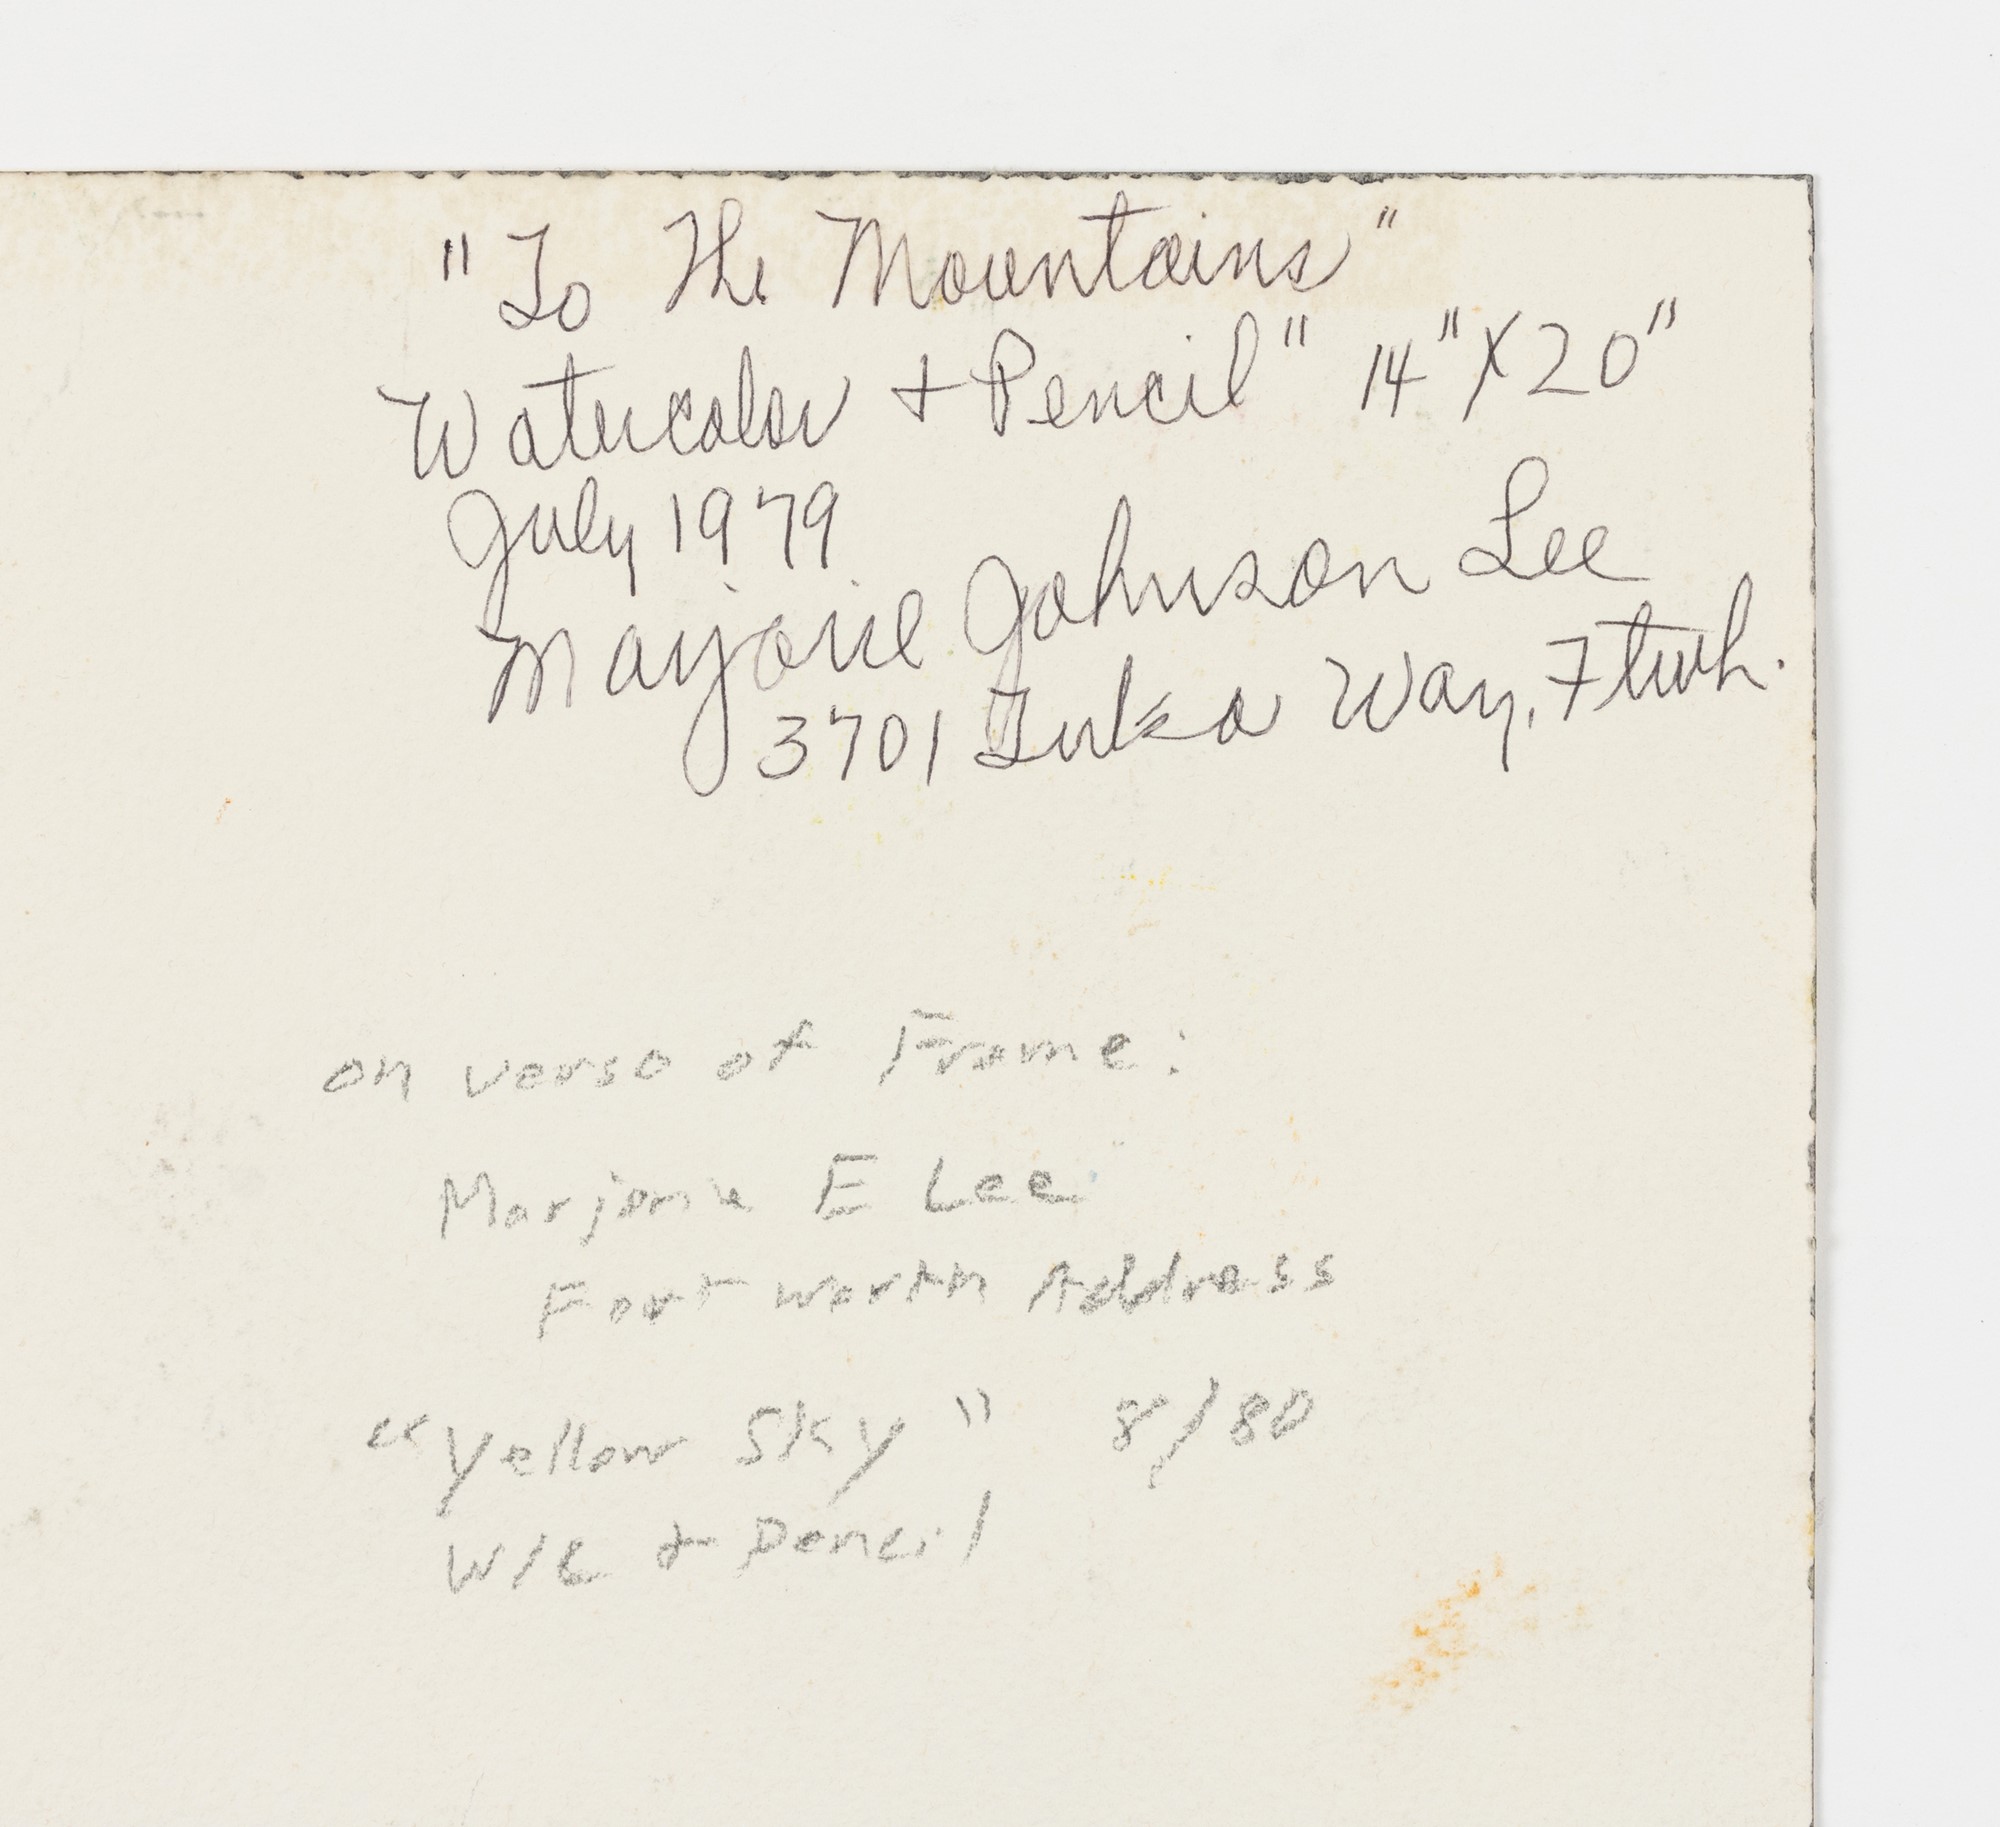 "To The Mountains"
Watercolor + Pencil" 14" X 20"
July 1979
Marjorie Johnson Lee
3701 Tulsa Way, Ftwh.
on verso of Frame:
Marjorie E Lee
Fort Worth Address
"Yellow Sky" 8/80
W/C + Pencil